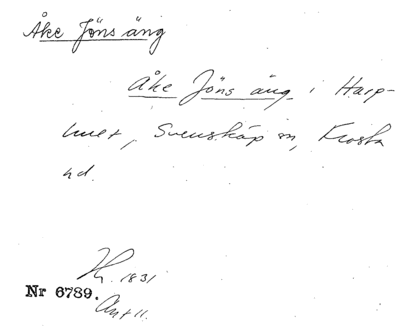 Åke Jöns äng
Åke Jöns äng i Harp-
hult, Svensköp sn, Frosta
hd.
1831
Nr 6789.
Ant 11.